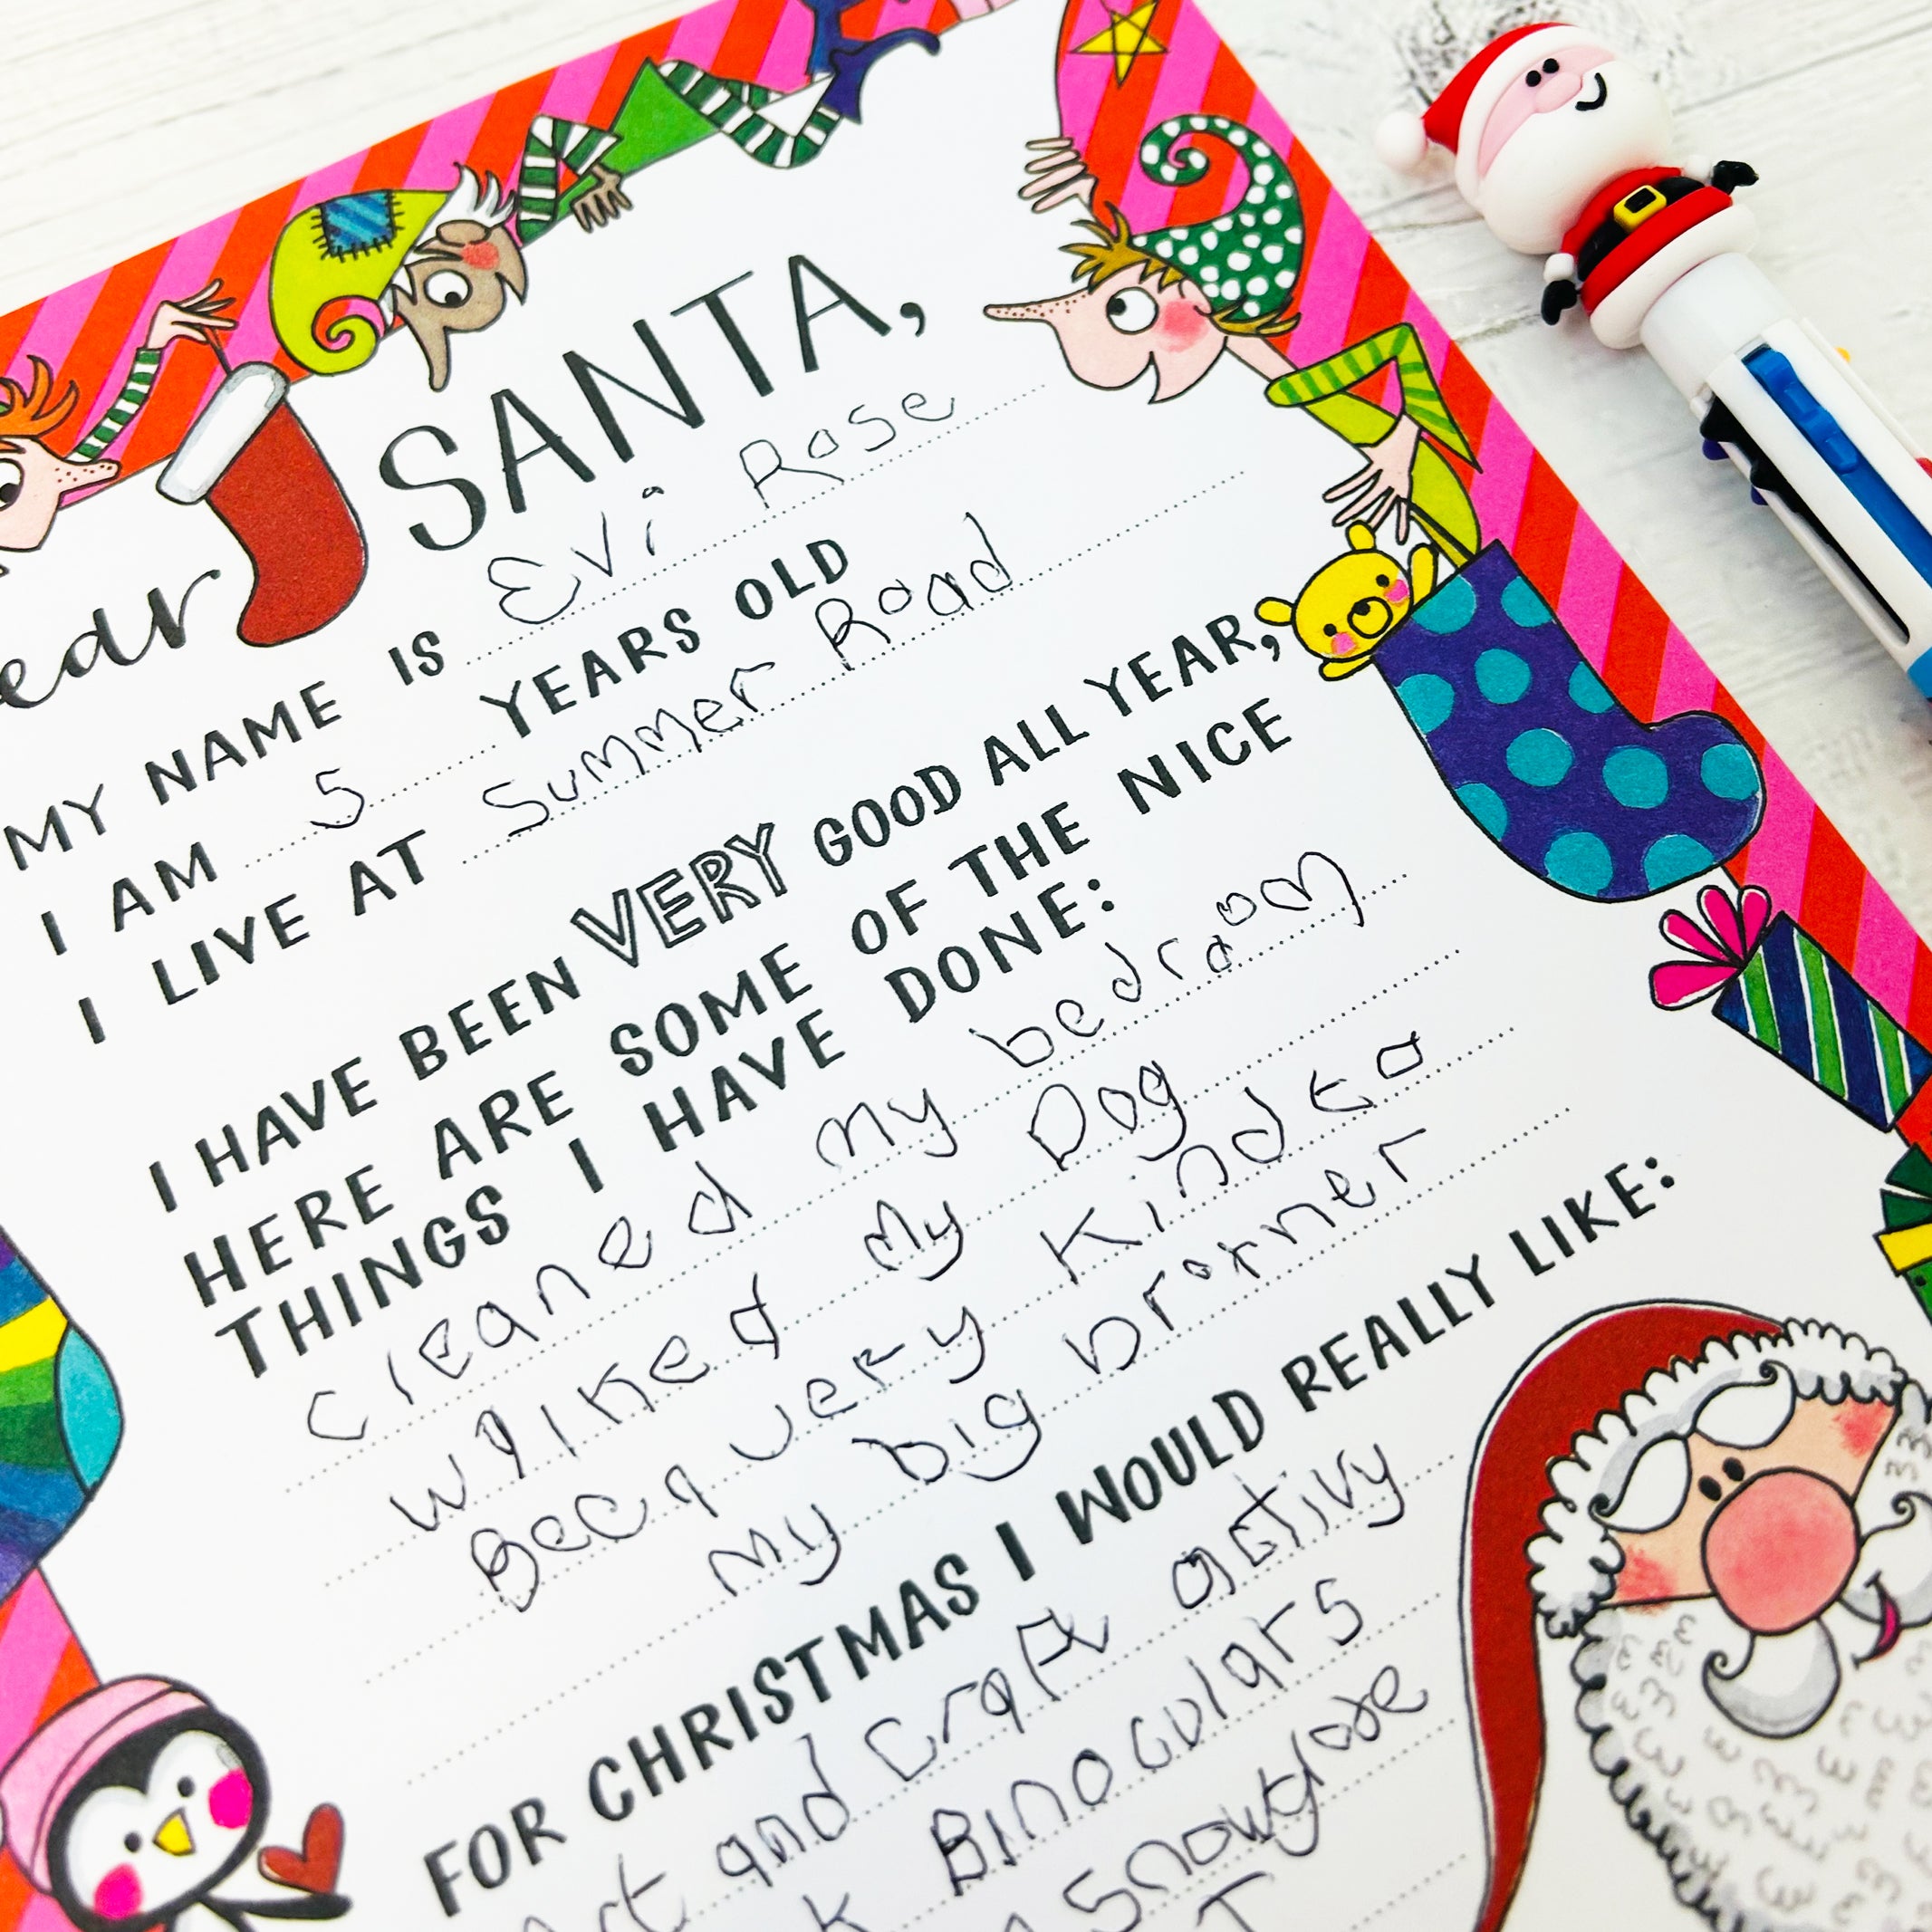 ear SANTA,
MY NAME IS Evi Rose
I AM 5 YEARS OLD
I LIVE AT Summer Road
I HAVE BEEN VERY GOOD ALL YEAR,
HERE ARE SOME OF THE NICE
THINGS I HAVE DONE:
cleaned my bedroom
wlked my Dog
Been very kind to
my big brother
FOR CHRISTMAS I WOULD REALLY LIKE:
rt and craft activy
k Binoculars
Snowglobe